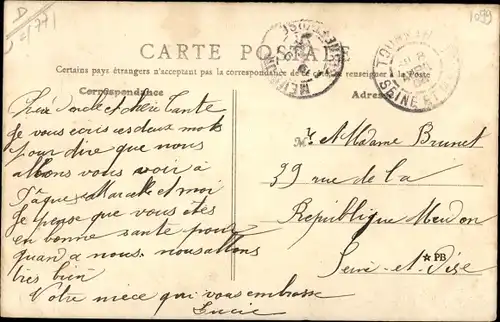 D
1771
1099
CARTE POSTALE
Certains pays étrangers n'acceptant pas la correspondance de ce côté, se renseigner à la Poste
Correspondance
Adresse
Cher oncle et chère Tante
Je vous écris ces deux mots
pour dire que nous
allons vous voir à
Pâques Marcelle et moi
Je pense que vous êtes
en bonne santé pour
quand a nous nous allons
très bien
Votre niece qui vous embrasse
Lucie
M. et Madame Brunet
39 rue de la
République Meudon
Seine-et-Oise
PB
SEINE ET
MEUDON
SEINE-ET-OISE